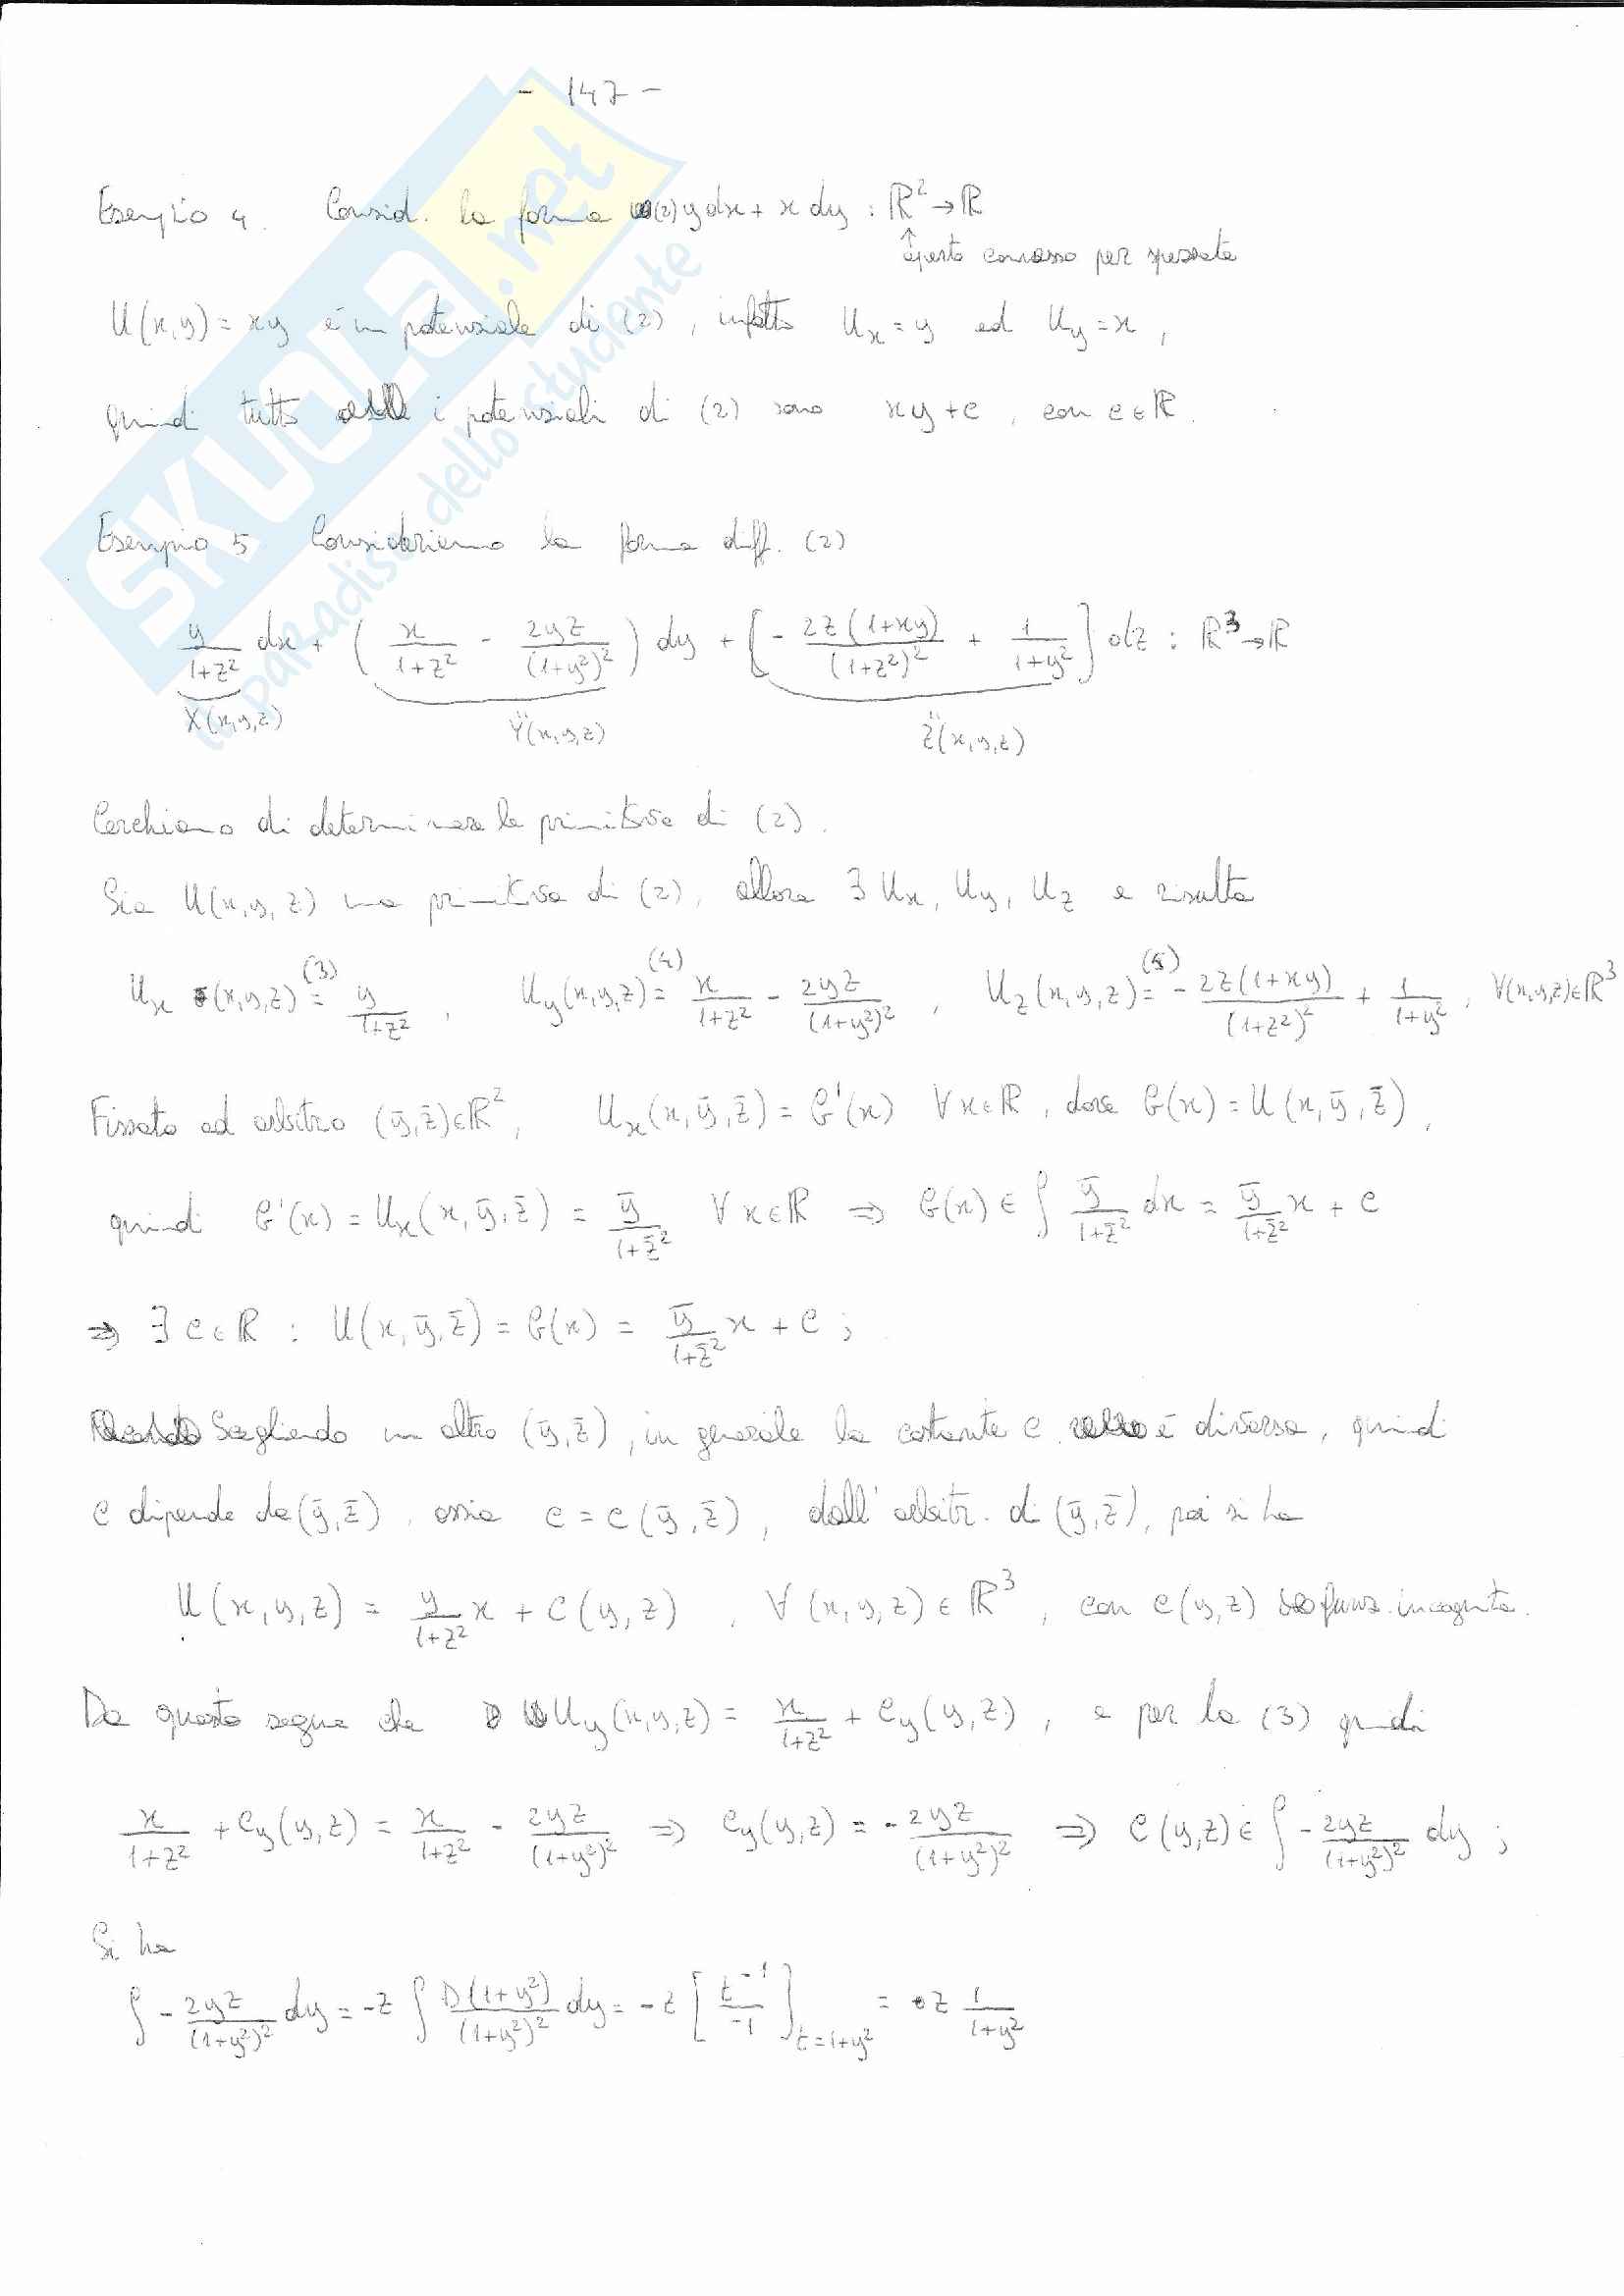 - 147 -
Esempio 4. Consid. la forma (2) y dx + x dy : ℝ² → ℝ
↑
aperto connesso per spezzate
U(x,y) = xy è un potenziale di (2), infatti U_x = y ed U_y = x,
quindi tutti i potenziali di (2) sono xy + c, con c ∈ ℝ.
Esempio 5 Consideriamo la forma diff. (2)
y/(1+z²) dx + ( x/(1+z²) - 2yz/(1+y²)² ) dy + [ - 2z(1+xy)/(1+z²)² + 1/(1+y²) ] dz : ℝ³ → ℝ
X(x,y,z) Y(x,y,z) Z(x,y,z)
Cerchiamo di determinare le primitive di (2).
Sia U(x,y,z) una primitiva di (2), allora ∃ U_x, U_y, U_z e risulta
U_x (x,y,z) =⁽³⁾ y/(1+z²) , U_y(x,y,z) =⁽⁴⁾ x/(1+z²) - 2yz/(1+y²)² , U_z(x,y,z) =⁽⁵⁾ - 2z(1+xy)/(1+z²)² + 1/(1+y²) , ∀(x,y,z) ∈ ℝ³
Fissato ad arbitrio (ȳ,z̄) ∈ ℝ², U_x(x,ȳ,z̄) = G'(x) ∀x ∈ ℝ, dove G(x) = U(x,ȳ,z̄),
quindi G'(x) = U_x(x,ȳ,z̄) = ȳ/(1+z̄²) ∀x ∈ ℝ ⇒ G(x) ∈ ∫ ȳ/(1+z̄²) dx = ȳ/(1+z̄²) x + c
⇒ ∃ c ∈ ℝ : U(x,ȳ,z̄) = G(x) = ȳ/(1+z̄²) x + c ;
Scegliendo un altro (ȳ,z̄), in generale la costante c è diversa, quindi
c dipende da (ȳ,z̄), ossia c = c(ȳ,z̄), dall'arbitr. di (ȳ,z̄), poi si ha
U(x,y,z) = y/(1+z²) x + c(y,z) , ∀(x,y,z) ∈ ℝ³, con c(y,z) funz. incognita.
Da questo segue che U_y(x,y,z) = x/(1+z²) + c_y(y,z), e per la (3) quindi
x/(1+z²) + c_y(y,z) = x/(1+z²) - 2yz/(1+y²)² ⇒ c_y(y,z) = - 2yz/(1+y²)² ⇒ c(y,z) ∈ ∫ - 2yz/(1+y²)² dy ;
Si ha
∫ - 2yz/(1+y²)² dy = -z ∫ D(1+y²)/(1+y²)² dy = -z [ t⁻¹/-1 ]_{t=1+y²} = z 1/(1+y²)
SKUOLA.net
il paradiso dello studente